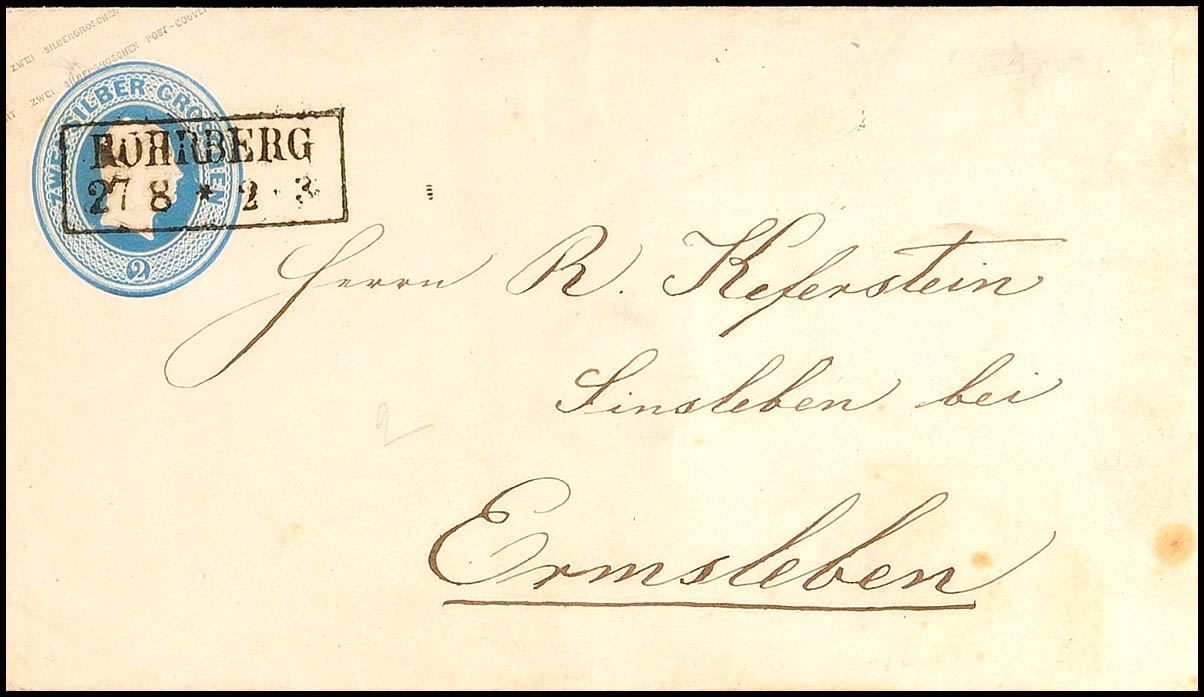 ZWEI SILBERGROSCHEN POST-COUVERT
ZWEI SILBERGROSCHEN
ZWEI SILBER GROSCHEN
2
ROHRBERG
27 8 * 2-3
Herrn R. Keferstein
Sinsleben bei
2
Ermsleben